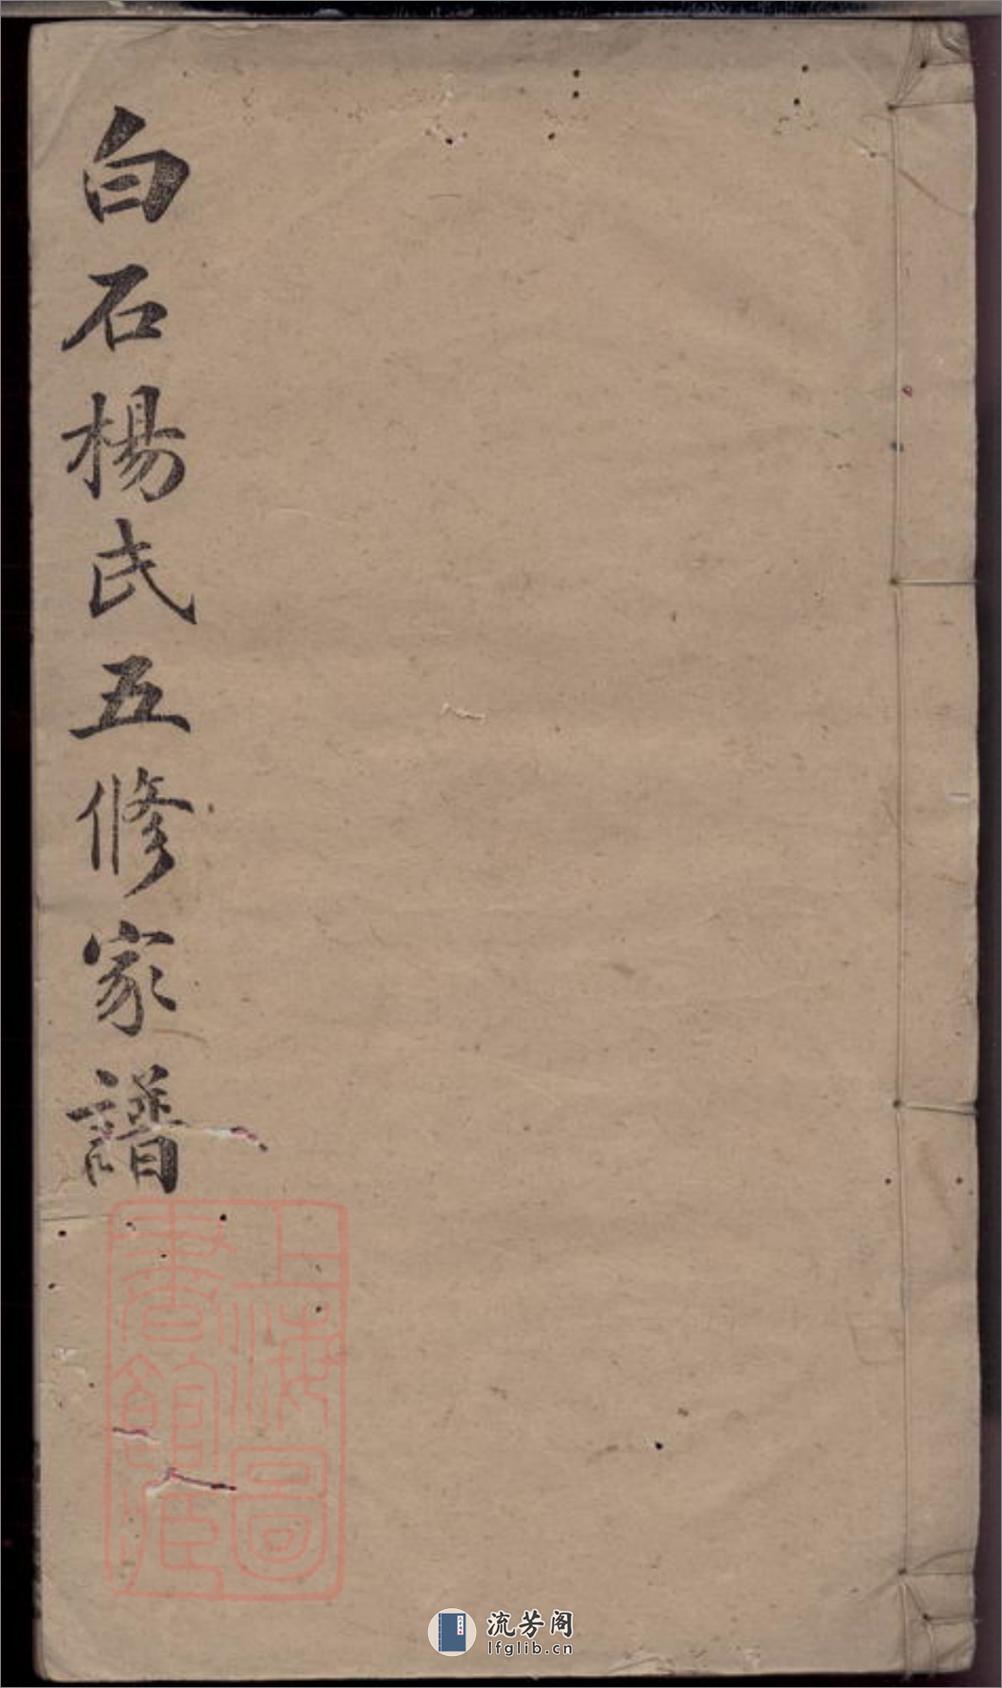 白石楊氏五修家譜
上海圖
書館藏
流芳阁
lfglib.cn